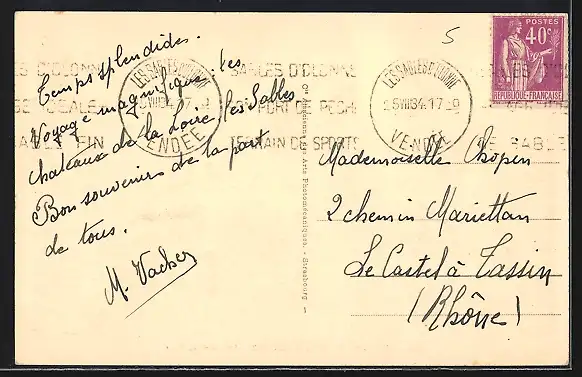 Temps splendides.
Voyage magnifique. les
chateaux de la Loire, les Sables
Bons souvenirs de la part
de tous.
M. Vacher
LES SABLES D'OLONNE
VENDÉE
SABLES D'OLONNE
PORT DE PECHE
TERRAIN DE SPORTS
Cie Alsacienne des Arts Photomécaniques. - Strasbourg
5
LES SABLES D'OLONNE
5 VIII 34. 17-0
VENDÉE
POSTES
40c
RÉPUBLIQUE FRANÇAISE
Mademoiselle Chopen
2 chemin Mariettan
Le Castel à Tassin
(Rhône)